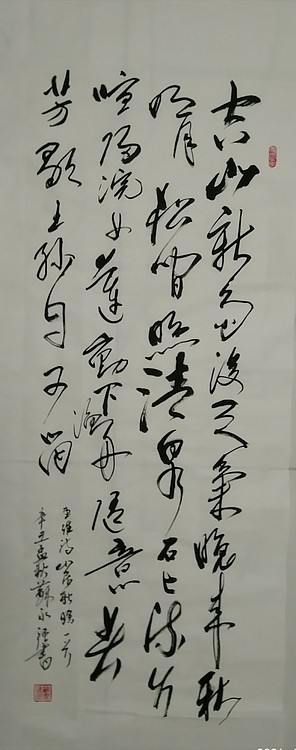 空山新雨後天氣晚来秋
明月松間照清泉石上流竹
喧歸浣女蓮動下漁舟随意春
芳歇王孫自可留
王維詩山居秋暝一首
辛丑孟秋蘇永書